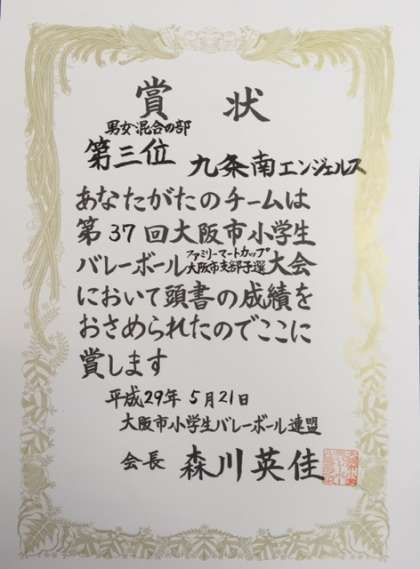 賞状
男女混合の部
第三位 九条南エンジェルス
あなたがたのチームは
第37回大阪市小学生
バレーボール ファミリーマートカップ 大阪市支部予選 大会
において頭書の成績を
おさめられたのでここに
賞します
平成29年5月21日
大阪市小学生バレーボール連盟
会長 森川英佳